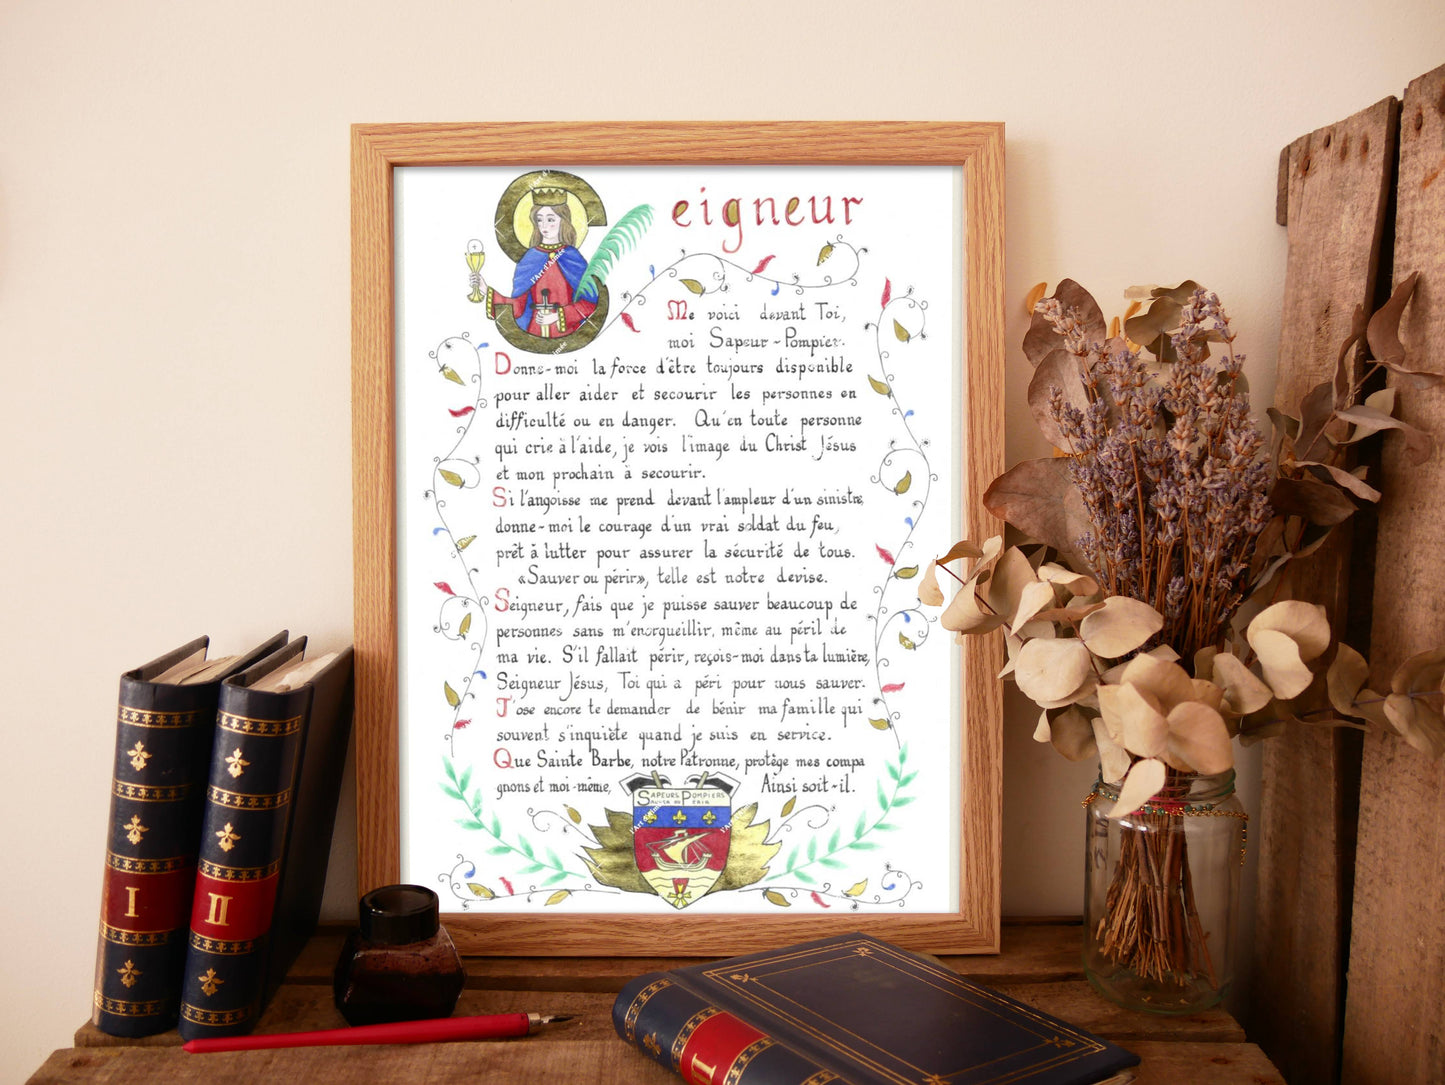 Seigneur
Me voici devant Toi,
moi Sapeur-Pompier.
Donne-moi la force d'être toujours disponible
pour aller aider et secourir les personnes en
difficulté ou en danger. Qu'en toute personne
qui crie à l'aide, je vois l'image du Christ Jésus
et mon prochain à secourir.
Si l'angoisse me prend devant l'ampleur d'un sinistre,
donne-moi le courage d'un vrai soldat du feu,
prêt à lutter pour assurer la sécurité de tous.
«Sauver ou périr», telle est notre devise.
Seigneur, fais que je puisse sauver beaucoup de
personnes sans m'enorgueillir, même au péril de
ma vie. S'il fallait périr, reçois-moi dans ta lumière,
Seigneur Jésus, Toi qui a péri pour nous sauver.
J'ose encore te demander de bénir ma famille qui
souvent s'inquiète quand je suis en service.
Que Sainte Barbe, notre Patronne, protège mes compa
gnons et moi-même, Ainsi soit-il.
SAPEURS POMPIERS
SAUVER OU PERIR
l'Art d'Aimée
I
II